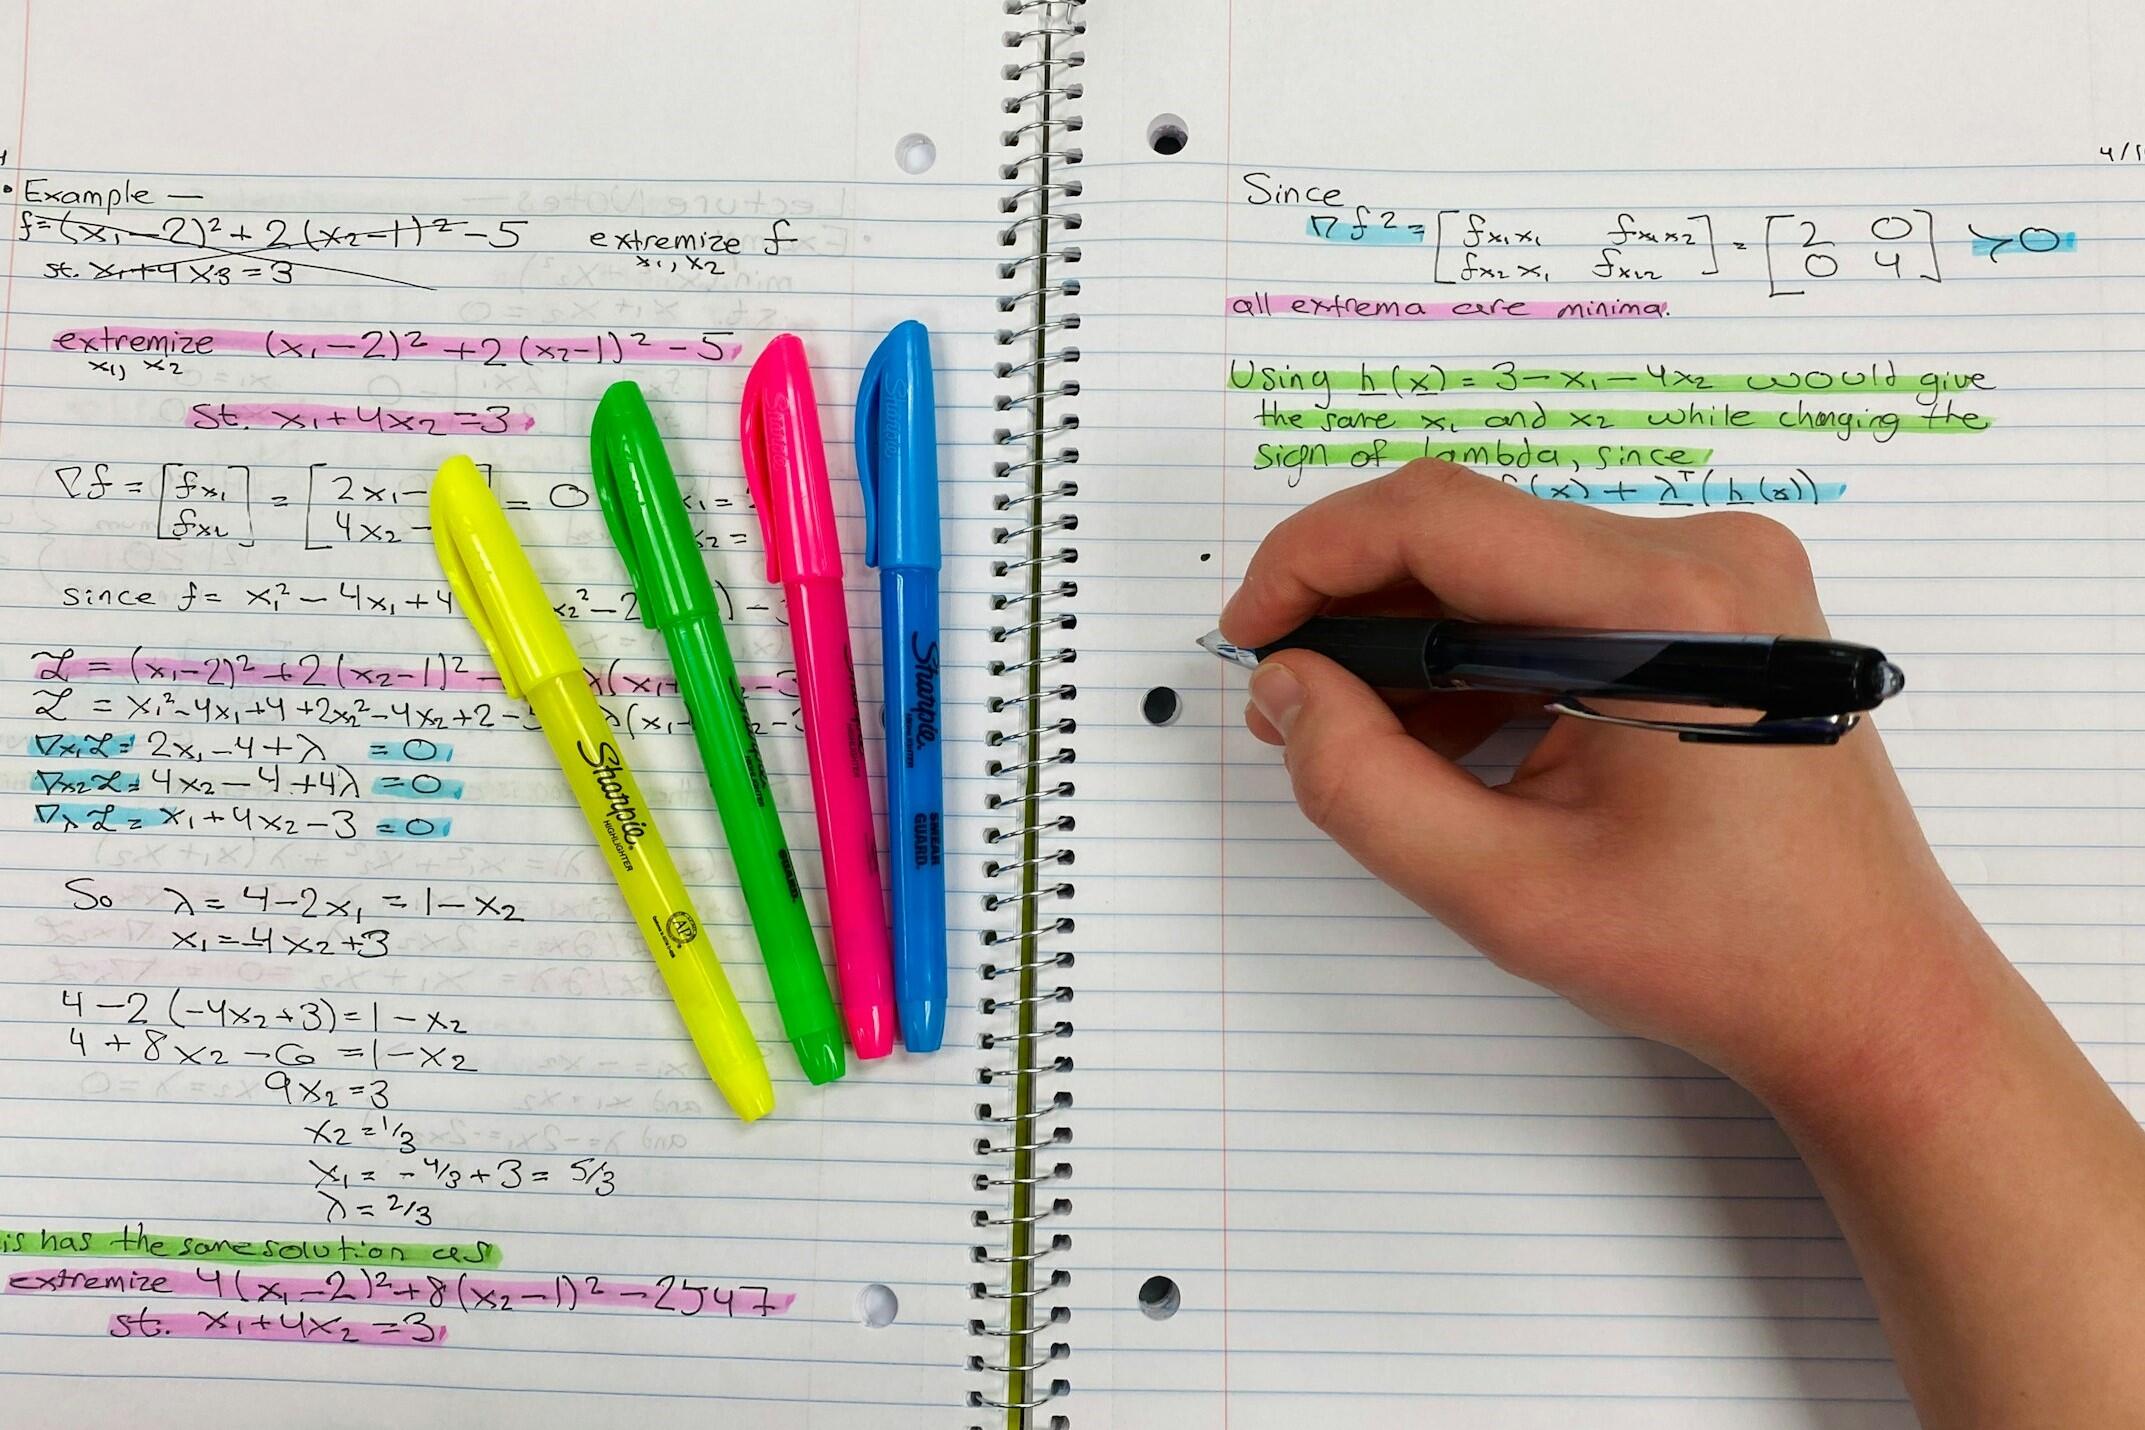 • Example —
f = (x₁ - 2)² + 2(x₂ - 1)² - 5 extremize f
x₁, x₂
st. x₁ + 4x₃ = 3
extremize (x₁ - 2)² + 2(x₂ - 1)² - 5
x₁, x₂
st. x₁ + 4x₂ = 3
∇f = [fx₁ = [2x₁ - = 0 x₁ =
fx₂] 4x₂ - x₂ =
since f = x₁² - 4x₁ + 4 x₂² - 2 ) -
ℒ = (x₁ - 2)² + 2(x₂ - 1)² - λ(x₁ + - 3
ℒ = x₁² - 4x₁ + 4 + 2x₂² - 4x₂ + 2 - 5 λ(x₁ - x₂ -
∇x₁ℒ = 2x₁ - 4 + λ = 0
∇x₂ℒ = 4x₂ - 4 + 4λ = 0
∇λℒ = x₁ + 4x₂ - 3 = 0
So λ = 4 - 2x₁ = 1 - x₂
x₁ = -4x₂ + 3
4 - 2(-4x₂ + 3) = 1 - x₂
4 + 8x₂ - 6 = 1 - x₂
9x₂ = 3
x₂ = 1/3
x₁ = -4/3 + 3 = 5/3
λ = 2/3
is has the same solution as
extremize 4(x₁ - 2)² + 8(x₂ - 1)² - 2547
st. x₁ + 4x₂ = 3
Sharpie.
HIGHLIGHTER
AP
Sharpie.
SMEAR
GUARD.
4/1
Since
∇f2 = [fx₁x₁ fx₁x₂] = [2 0] >0
[fx₂x₁ fx₂₂] [0 4]
all extrema are minima.
Using h(x) = 3 - x₁ - 4x₂ would give
the same x₁ and x₂ while changing the
sign of lambda, since
f(x) + λᵀ(h(x))
•